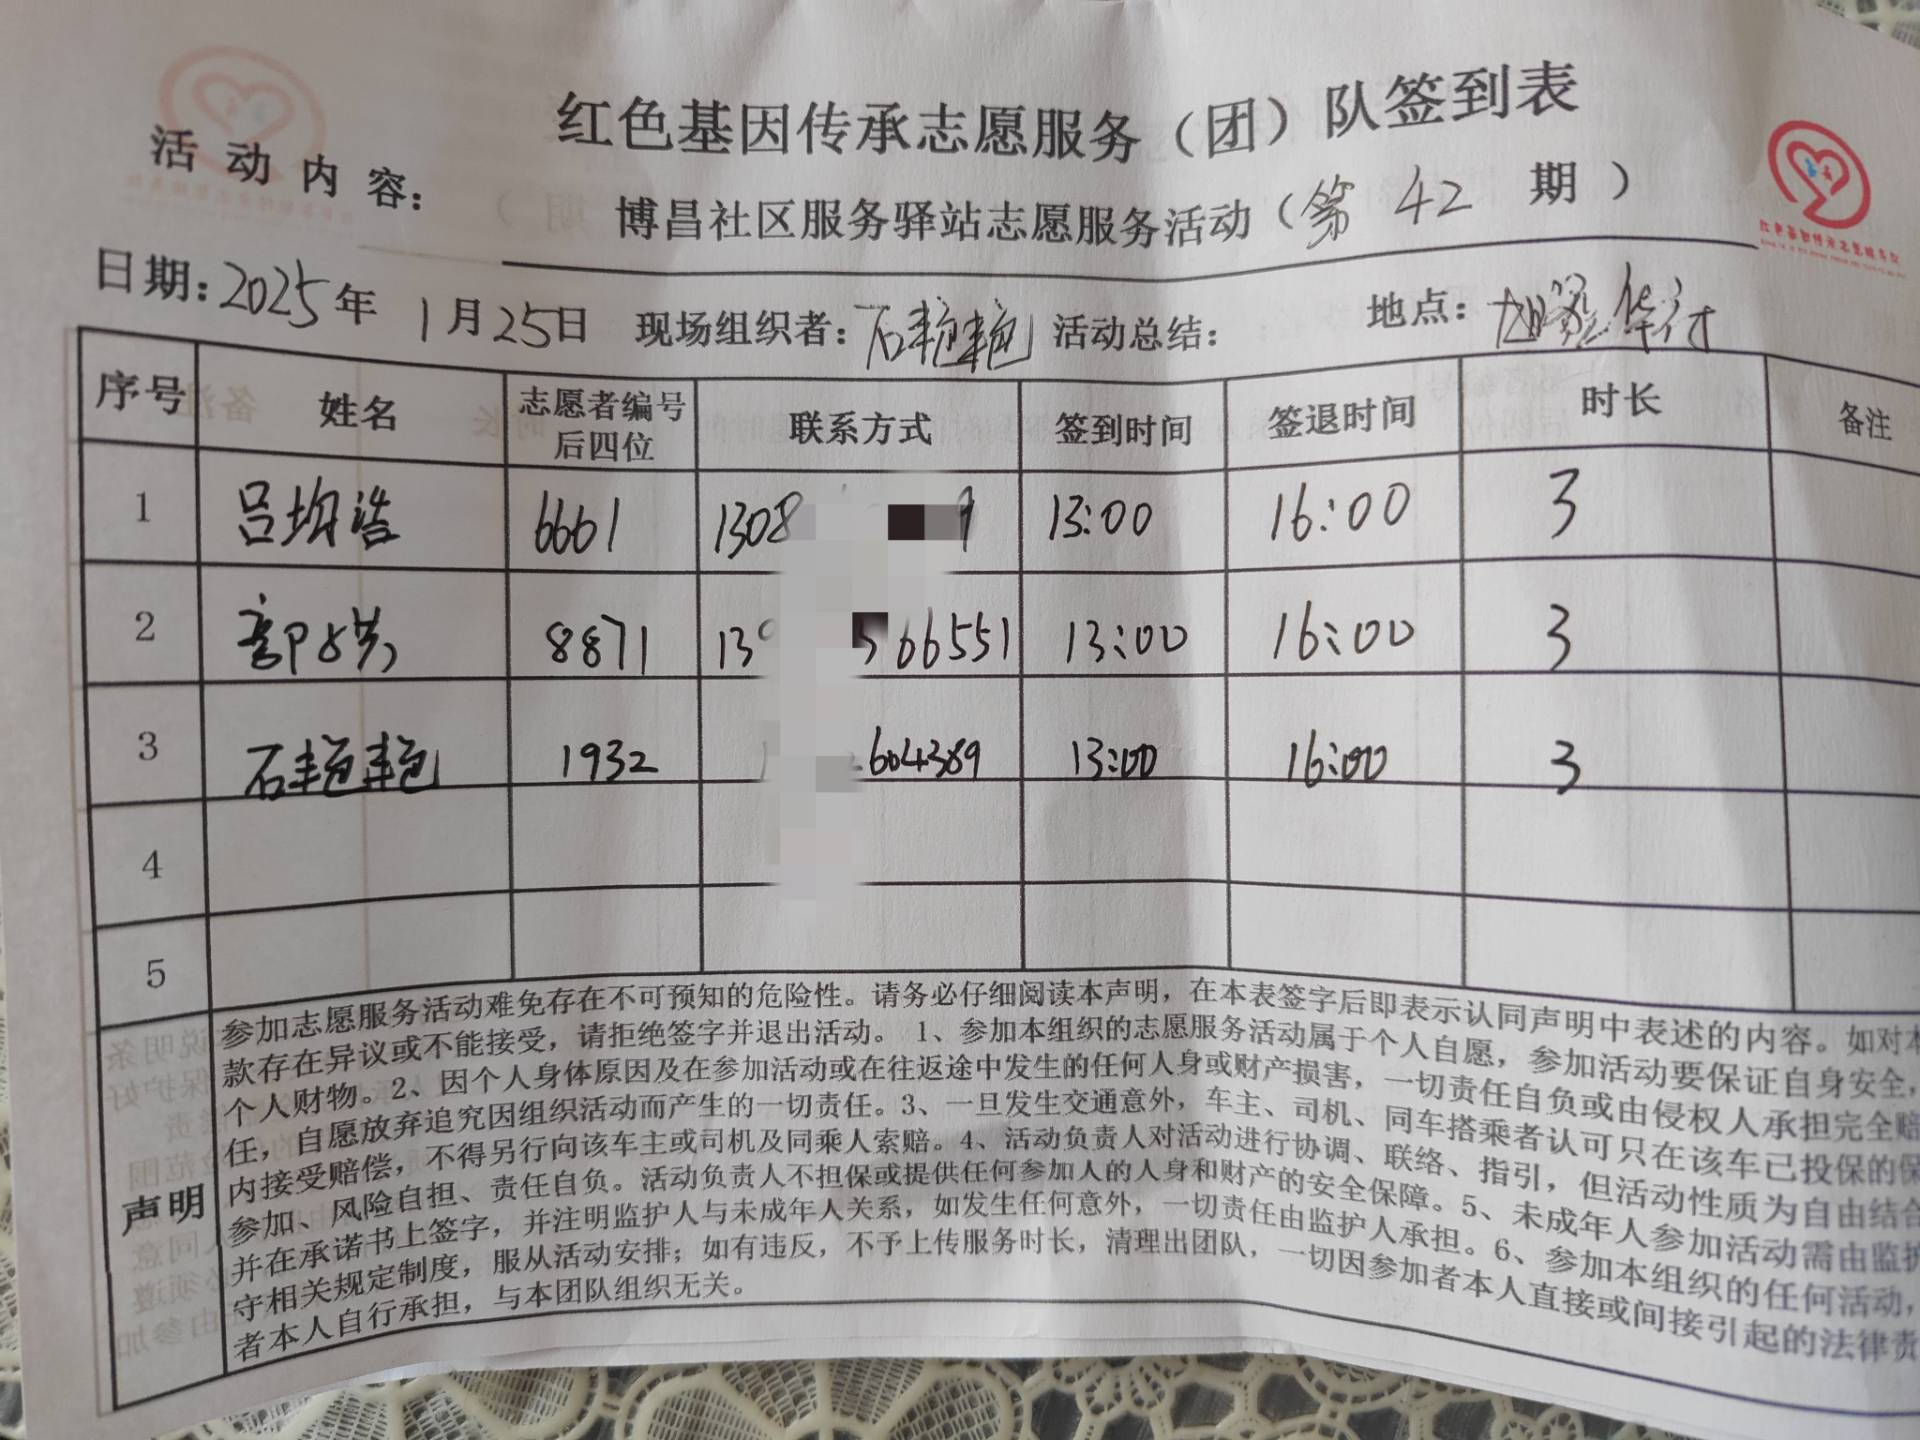 红色基因传承志愿服务（团）队签到表
活动内容：
博昌社区服务驿站志愿服务活动（第 42 期）
日期：2025年 1月25日 现场组织者：石艳艳 活动总结： 地点：
序号 姓名 志愿者编号后四位 联系方式 签到时间 签退时间 时长 备注
1 吕均浩 6661 1308 9 13:00 16:00 3
2 郭 8871 13 66551 13:00 16:00 3
3 石艳艳 1932 1 604389 13:00 16:00 3
4
5
声明
参加志愿服务活动难免存在不可预知的危险性。请务必仔细阅读本声明，在本表签字后即表示认同声明中表述的内容。如对本
款存在异议或不能接受，请拒绝签字并退出活动。 1、参加本组织的志愿服务活动属于个人自愿，参加活动要保证自身安全，
个人财物。2、因个人身体原因及在参加活动或在往返途中发生的任何人身或财产损害，一切责任自负或由侵权人承担完全赔
任，自愿放弃追究因组织活动而产生的一切责任。3、一旦发生交通意外，车主、司机、同车搭乘者认可只在该车已投保的保
内接受赔偿，不得另行向该车主或司机及同乘人索赔。4、活动负责人对活动进行协调、联络、指引，但活动性质为自由结合
参加、风险自担、责任自负。活动负责人不担保或提供任何参加人的人身和财产的安全保障。5、未成年人参加活动需由监护
并在承诺书上签字，并注明监护人与未成年人关系，如发生任何意外，一切责任由监护人承担。6、参加本组织的任何活动，
守相关规定制度，服从活动安排；如有违反，不予上传服务时长，清理出团队，一切因参加者本人直接或间接引起的法律责
者本人自行承担，与本团队组织无关。